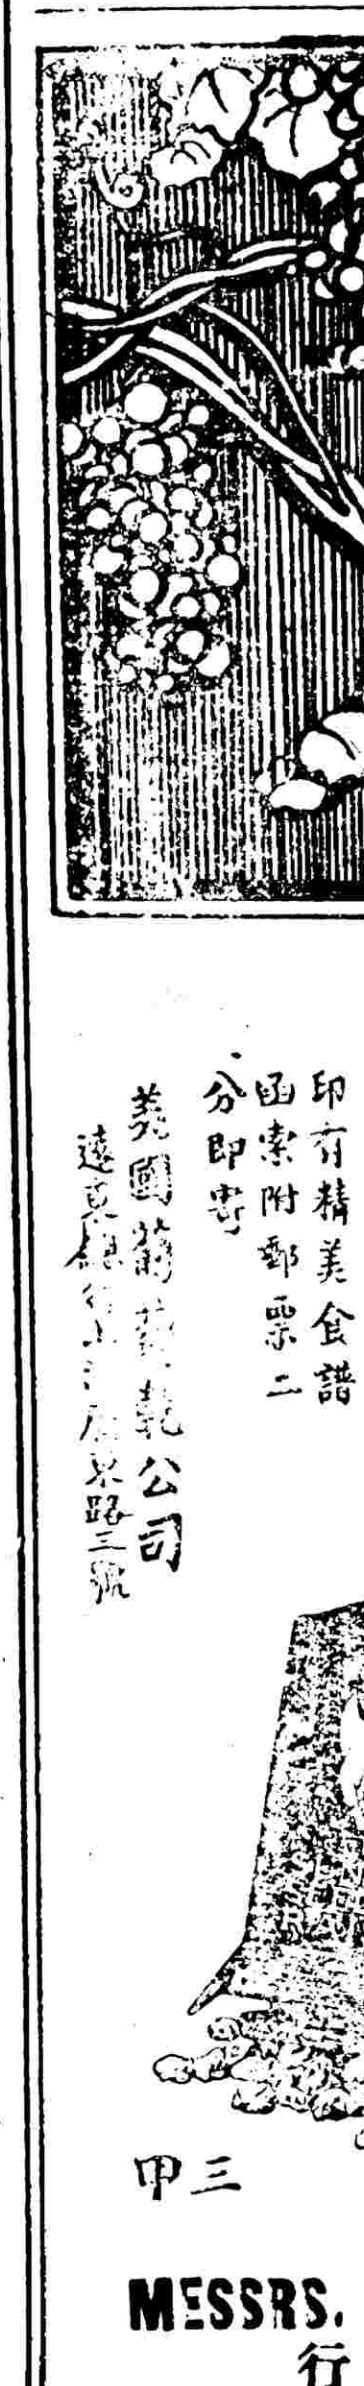 印有精美食譜
函索附郵票二
分即寄
美國葡萄乾公司
遠東 行 東路三號
甲三
MESSRS.
行